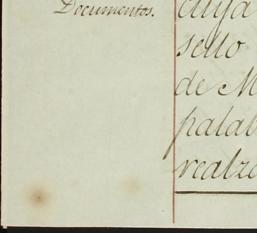 Documentos.
cuya
sello
de M
palab
realza